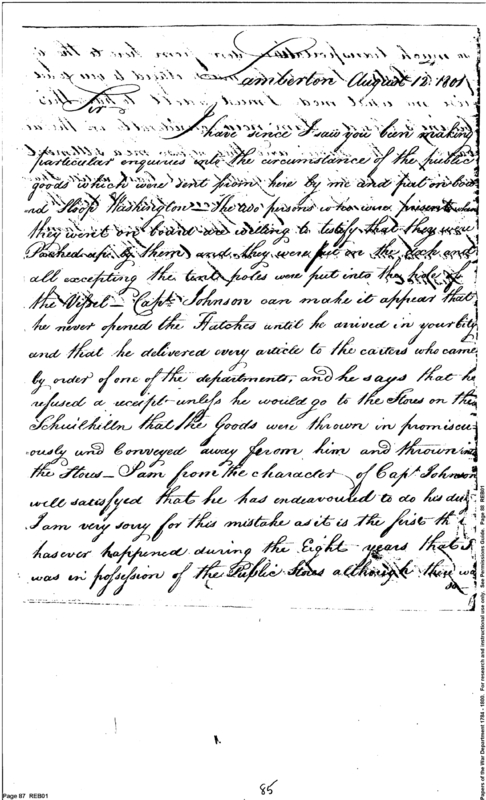 Lamberton August 12. 1801
Sir
I have since I saw you been making
particular enquiries into the circumstance of the public
goods which were sent from here by me and put on boa
rd Sloop Washington — The two persons who were present when
they went on board are willing to testify that they were
Packed up by them and they were put on the deck and
all excepting the tent poles were put into the hole of
the Vessel — Capt. Johnson can make it appear that
he never opened the Hatches until he arrived in your City
and that he delivered every article to the carters who came
by order of one of the departments, and he says that he
refused a receipt unless he would go to the Stores on the
Schuilkilln that the Goods were thrown in promiscu
ously and Conveyed away from him and thrown into
the Stores — I am from the character of Capt. Johnson
well satisfyed that he has endeavoured to do his duty
I am very sorry for this mistake as it is the first th
hasever happened during the Eight years that I
was in possession of the Public Stores although they wa
85
Page 87 REB01
Papers of the War Department 1784 - 1800. For research and instructional use only. See Permissions Guide. Page 88 REB01